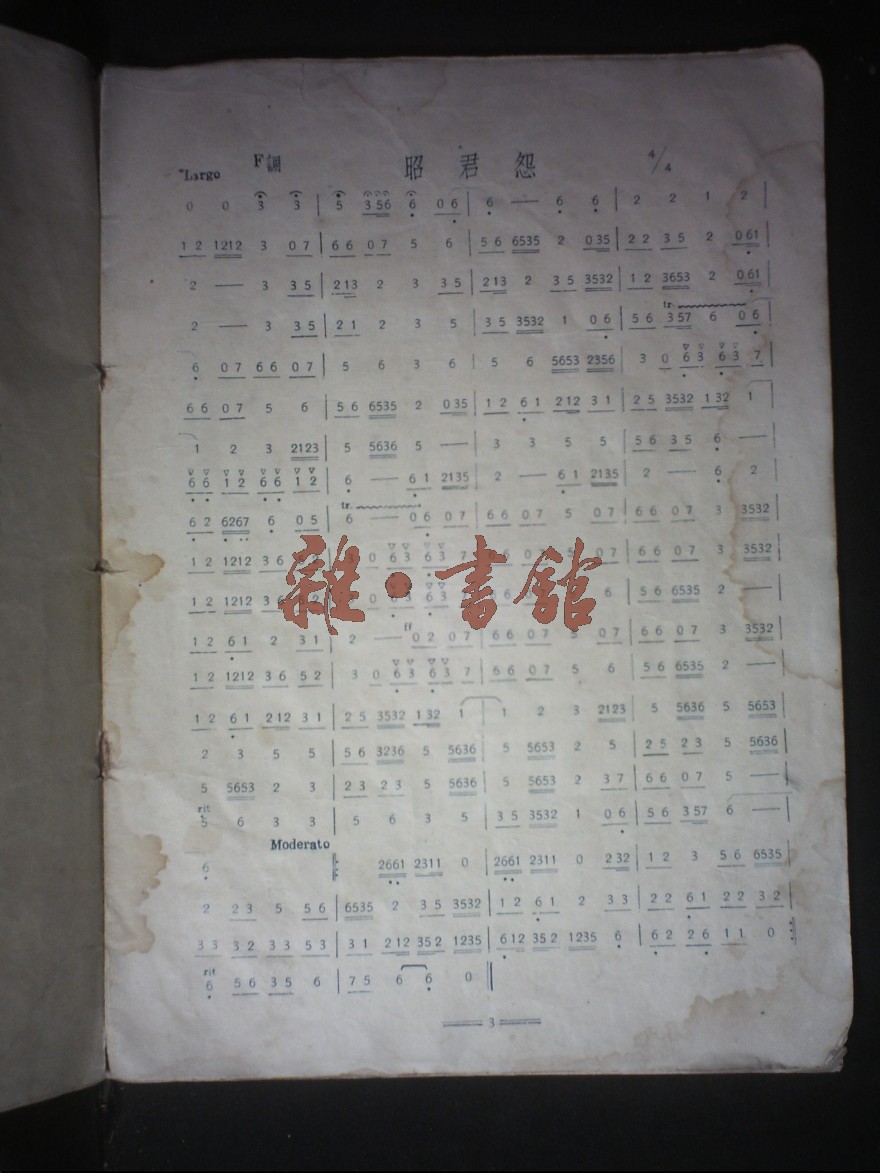 Largo F調 昭君怨 4/4
0 0 3 3 | 5 3 56 6 0 6 | 6 — 6 6 | 2 2 1 2 |
1 2 1212 3 0 7 | 6 6 0 7 5 6 | 5 6 6535 2 0 35 | 2 2 3 5 2 0 61 |
2 — 3 3 5 | 2 13 2 3 3 5 | 2 13 2 3 5 3532 | 1 2 3653 2 0 61 |
2 — 3 3 5 | 2 1 2 3 5 | 3 5 3532 1 0 6 | 5 6 3 57 tr. 6 0 6 |
6 0 7 6 6 0 7 | 5 6 3 6 | 5 6 5653 2356 | 3 0 6 3 6 3 7 |
6 6 0 7 5 6 | 5 6 6535 2 0 35 | 1 2 6 1 2 12 3 1 | 2 5 3532 1 32 1 |
1 2 3 2123 | 5 5636 5 — | 3 3 5 5 | 5 6 3 5 6 — |
6 6 1 2 6 6 1 2 | 6 — 6 1 2135 | 2 — 6 1 2135 | 2 — 6 2 |
6 2 6267 6 0 5 | tr. 6 — 0 6 0 7 | 6 6 0 7 5 0 7 | 6 6 0 7 3 3532 |
1 2 1212 3 6 | 0 6 3 6 3 7 | 6 0 7 5 0 7 | 6 6 0 7 3 3532 |
1 2 1212 3 6 5 2 | 0 6 3 6 3 | 6 | 5 6 6535 2 — |
1 2 6 1 2 3 1 | 2 — ff 0 2 0 7 | 6 6 0 7 5 0 7 | 6 6 0 7 3 3532 |
1 2 1212 3 6 5 2 | 3 0 6 3 6 3 7 | 6 6 0 7 5 6 | 5 6 6535 2 — |
1 2 6 1 2 12 3 1 | 2 5 3532 1 32 1 | 1 2 3 2123 | 5 5636 5 5653 |
2 3 5 5 | 5 6 3236 5 5636 | 5 5653 2 5 | 2 5 2 3 5 5636 |
5 5653 2 3 | 2 3 2 3 5 5636 | 5 5653 2 3 7 | 6 6 0 7 5 — |
rit 5 6 3 3 | 5 6 3 5 | 3 5 3532 1 0 6 | 5 6 3 57 6 — |
Moderato
6 2661 2311 0 | 2661 2311 0 2 32 | 1 2 3 5 6 6535 |
2 2 3 5 5 6 | 6535 2 3 5 3532 | 1 2 6 1 2 3 3 | 2 2 6 1 2 2 3 2 |
3 3 3 2 3 3 5 3 | 3 1 2 12 3 52 1235 | 6 12 3 52 1235 6 | 6 2 2 6 1 1 0
rit 6 5 6 3 5 6 | 7 5 6 6 0
3
雜·書館